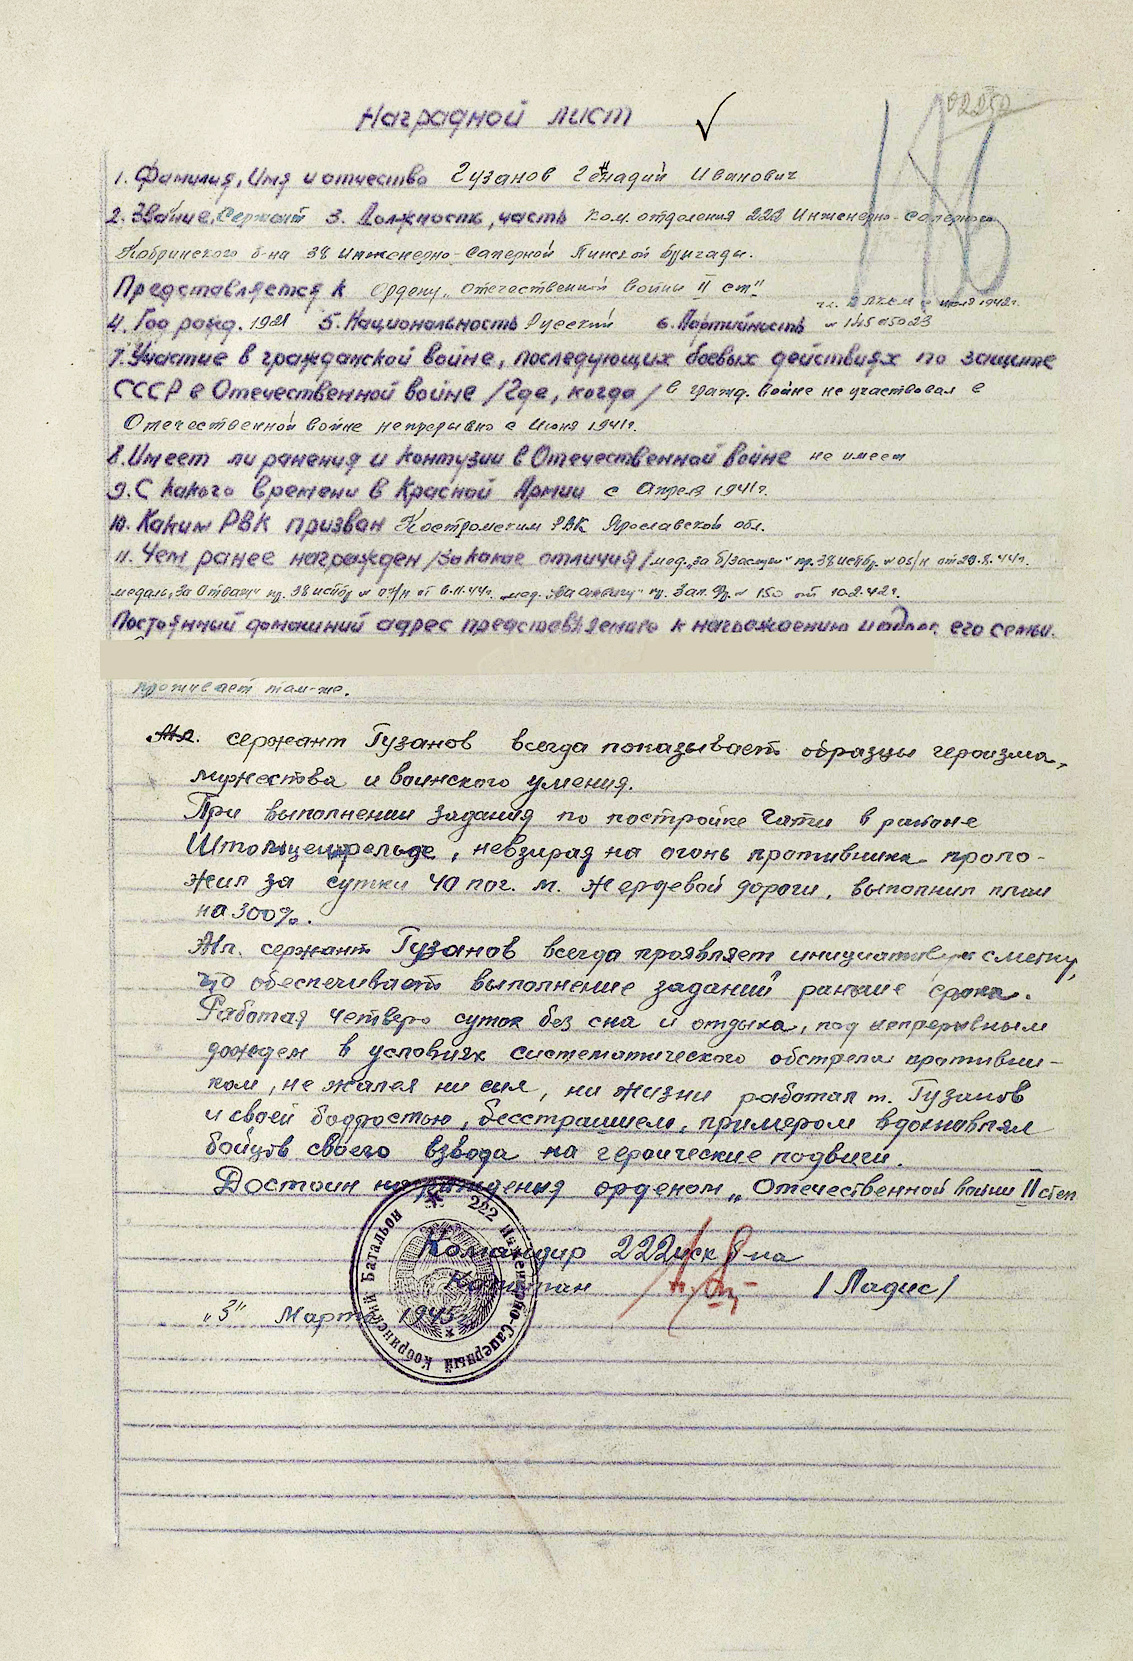 02252
Наградной лист
1. Фамилия, Имя и отчество Гузанов Генадий Иванович
2. Звание, Сержант 3. Должность, часть ком. отделения 222 Инженерно-Саперного
Кобринского б-на 38 Инженерно-Саперной Пинской бригады.
Представляется к Ордену „Отечественной войны II ст"
чл. ВЛКСМ с июля 1942г.
4. Год рожд. 1921 5. Национальность Русский 6. Партийность № 14505023
7. Участие в гражданской войне, последующих боевых действиях по защите
СССР в Отечественной войне /Где, когда/ в гражд. войне не участвовал в
Отечественной войне непрерывно с Июня 1941г.
8. Имеет ли ранения и контузии в Отечественной войне не имеет
9. С какого времени в Красной Армии с Апреля 1941г.
10. Каким РВК призван Костромским РВК Ярославской обл.
11. Чем ранее награжден /за какое отличия/ мед. „за б/заслуги" пр. 38 исбр. № 05/н от 29.8.44г.
медаль „за Отвагу" пр. 38 исбр № 07/н от 6.11.44г. „мед. „За отвагу" пр. Зап. Ф. № 150 от 10.2.42г.
Постоянный домашний адрес представляемого к награждению и адрес его семьи.
проживает там-же.
Мл. сержант Гузанов всегда показывает образцы героизма,
мужества и воинского умения.
При выполнении задания по постройке гати в районе
невзирая на огонь противника проло-
жил за сутки 40 пог. м. жердевой дороги, выполнил план
на 300%.
Мл. сержант Гузанов всегда проявляет инициативу и смекку,
что обеспечивает выполнение заданий раньше срока.
Работая четверо суток без сна и отдыха, под непрерывным
дождем в условиях систематического обстрела противни-
ком, не жалея ни сил, ни жизни работал т. Гузанов
и своей бодростью, бесстрашием, примером вдохнавлял
бойцов своего взвода на героические подвиги.
Достоин награждения орденом „Отечественной войны II степ
Командир 222 иск б-на
Капитан /Ладис/
„3" Марта 1945г.
222 Инженерно-Саперный Кобринский Батальон